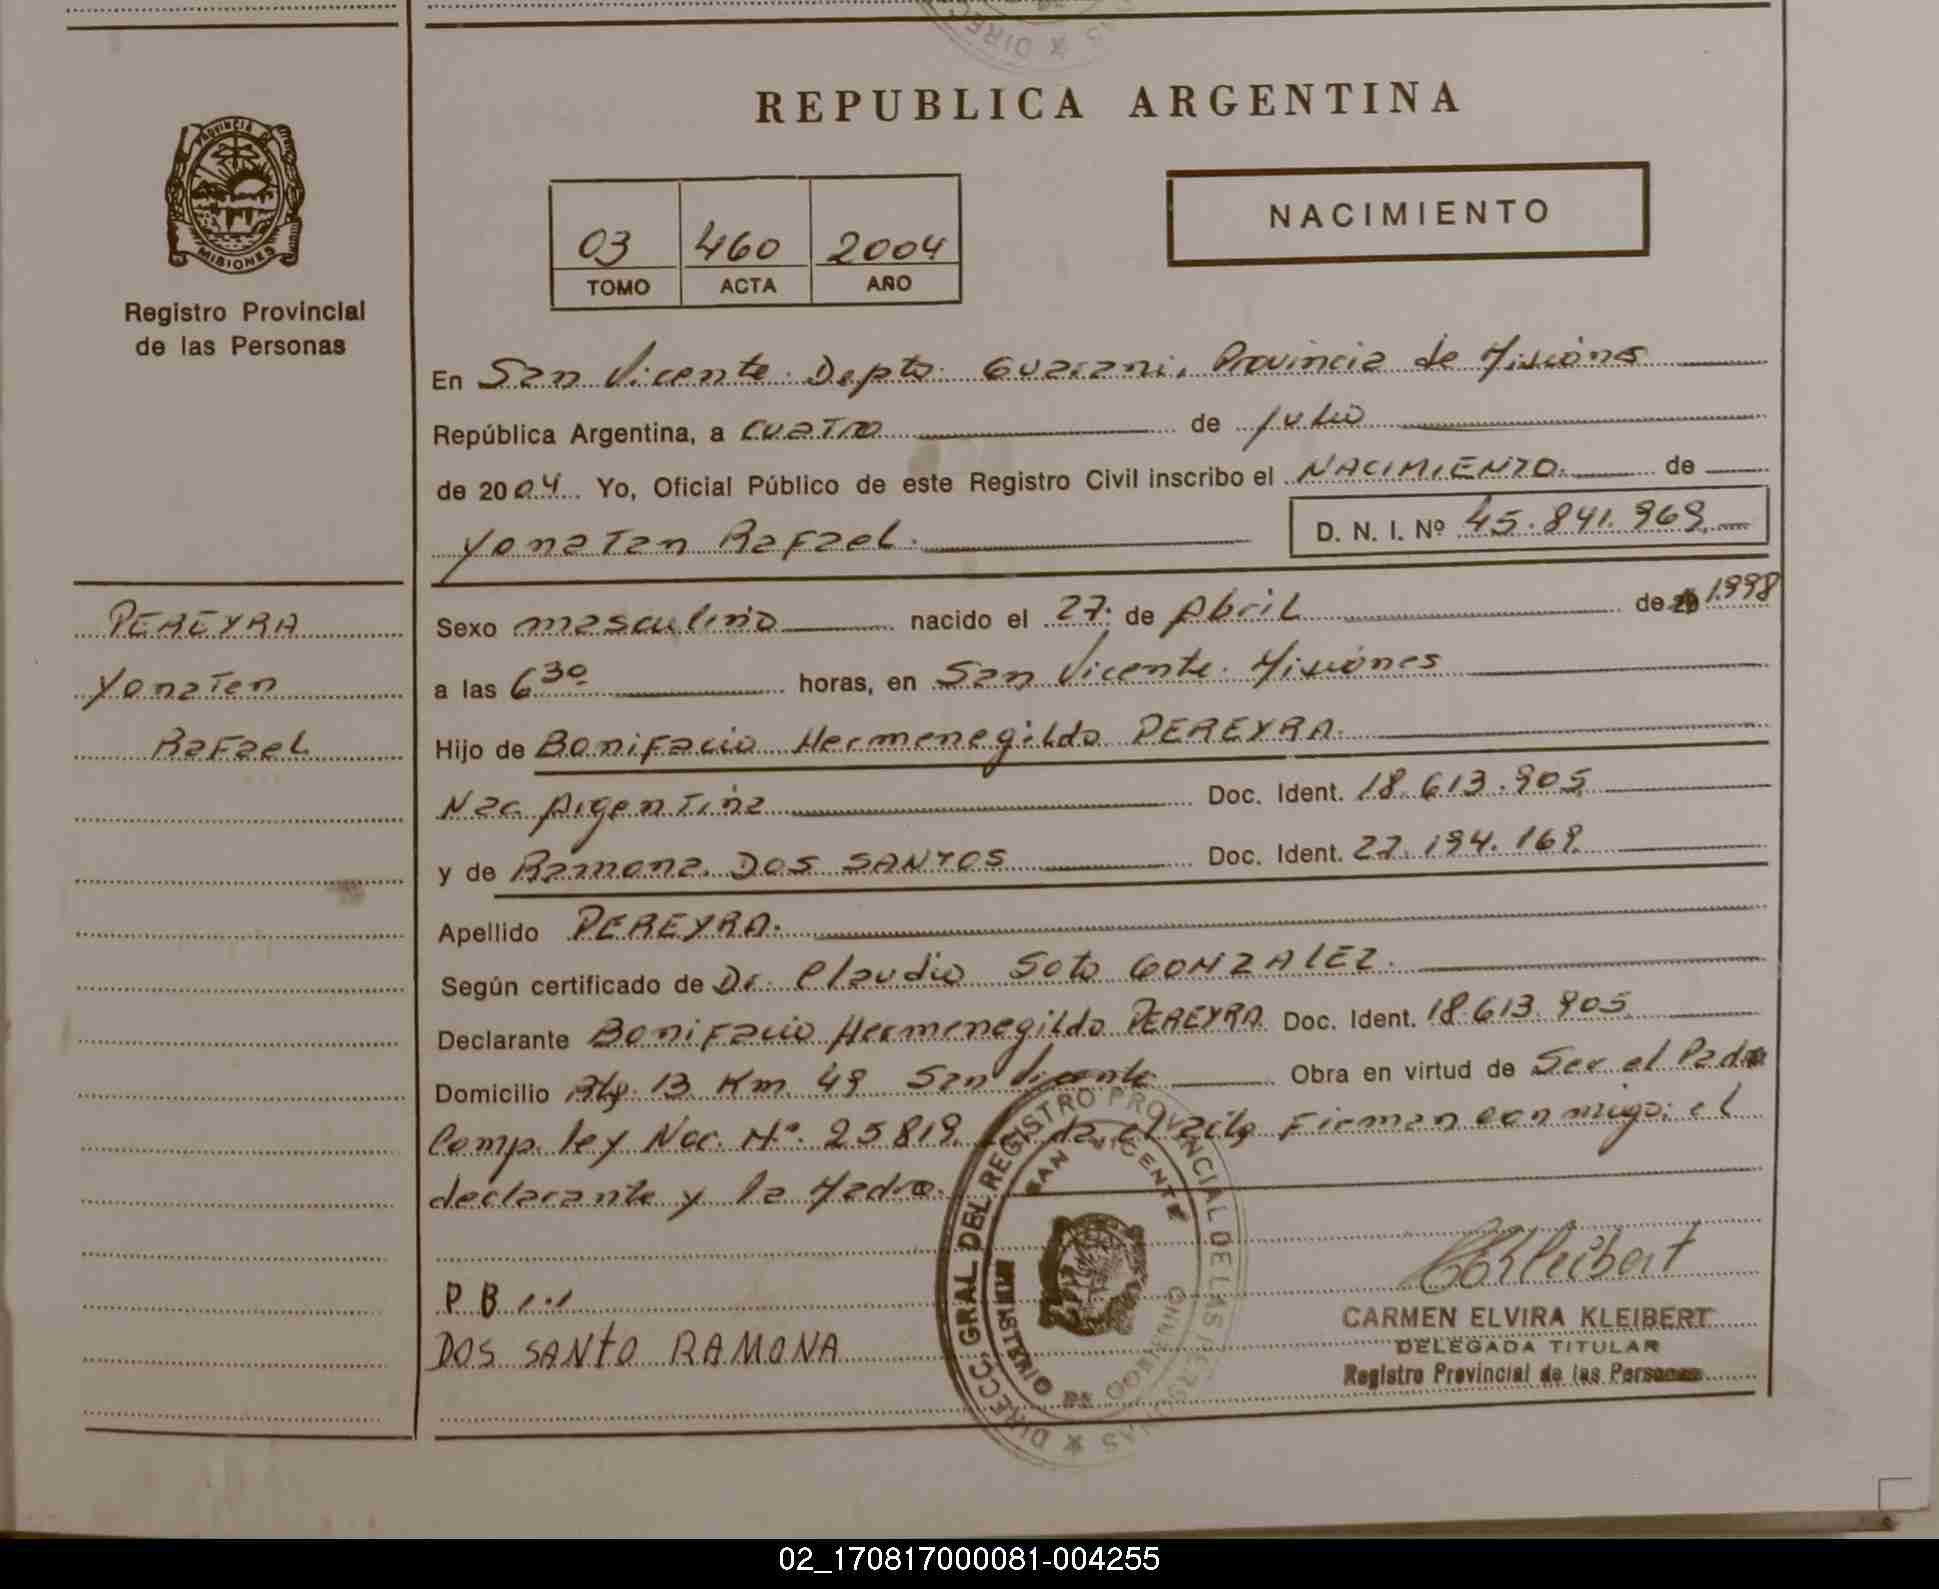 REPUBLICA ARGENTINA
PROVINCIA DE
MISIONES
Registro Provincial
de las Personas
NACIMIENTO
03 460 2004
TOMO ACTA AÑO
En San Vicente Depto Guarani, Provincia de Misiones
República Argentina, a cuatro de julio
de 2004 Yo, Oficial Público de este Registro Civil inscribo el NACIMIENTO de
Yonatan Rafael. D. N. I. Nº 45.841.969
PEREYRA
Yonatan
Rafael
Sexo masculino nacido el 27 de Abril de 1998
a las 6 30 horas, en San Vicente. Misiones
Hijo de Bonifacio Hermenegildo PEREYRA.
Nac. Argentina Doc. Ident. 18.613.905
y de Ramona DOS SANTOS Doc. Ident. 27.194.169
Apellido PEREYRA.
Según certificado de Dr. Claudio Soto GONZALEZ.
Declarante Bonifacio Hermenegildo PEREYRA Doc. Ident. 18.613.905
Domicilio 13 Km 49 San Vicente Obra en virtud de Ser el Padre
Comp. ley Nac. Nº 25819 Firman conmigo: el
declarante y la Madre.
P B
DOS SANTO RAMONA
DIRECC. GRAL DEL REGISTRO PROVINCIAL DE LAS PERSONAS
SAN VICENTE
MINISTERIO DE GOBIERNO
CEKleibert
CARMEN ELVIRA KLEIBERT
DELEGADA TITULAR
Registro Provincial de las Personas
02_170817000081-004255